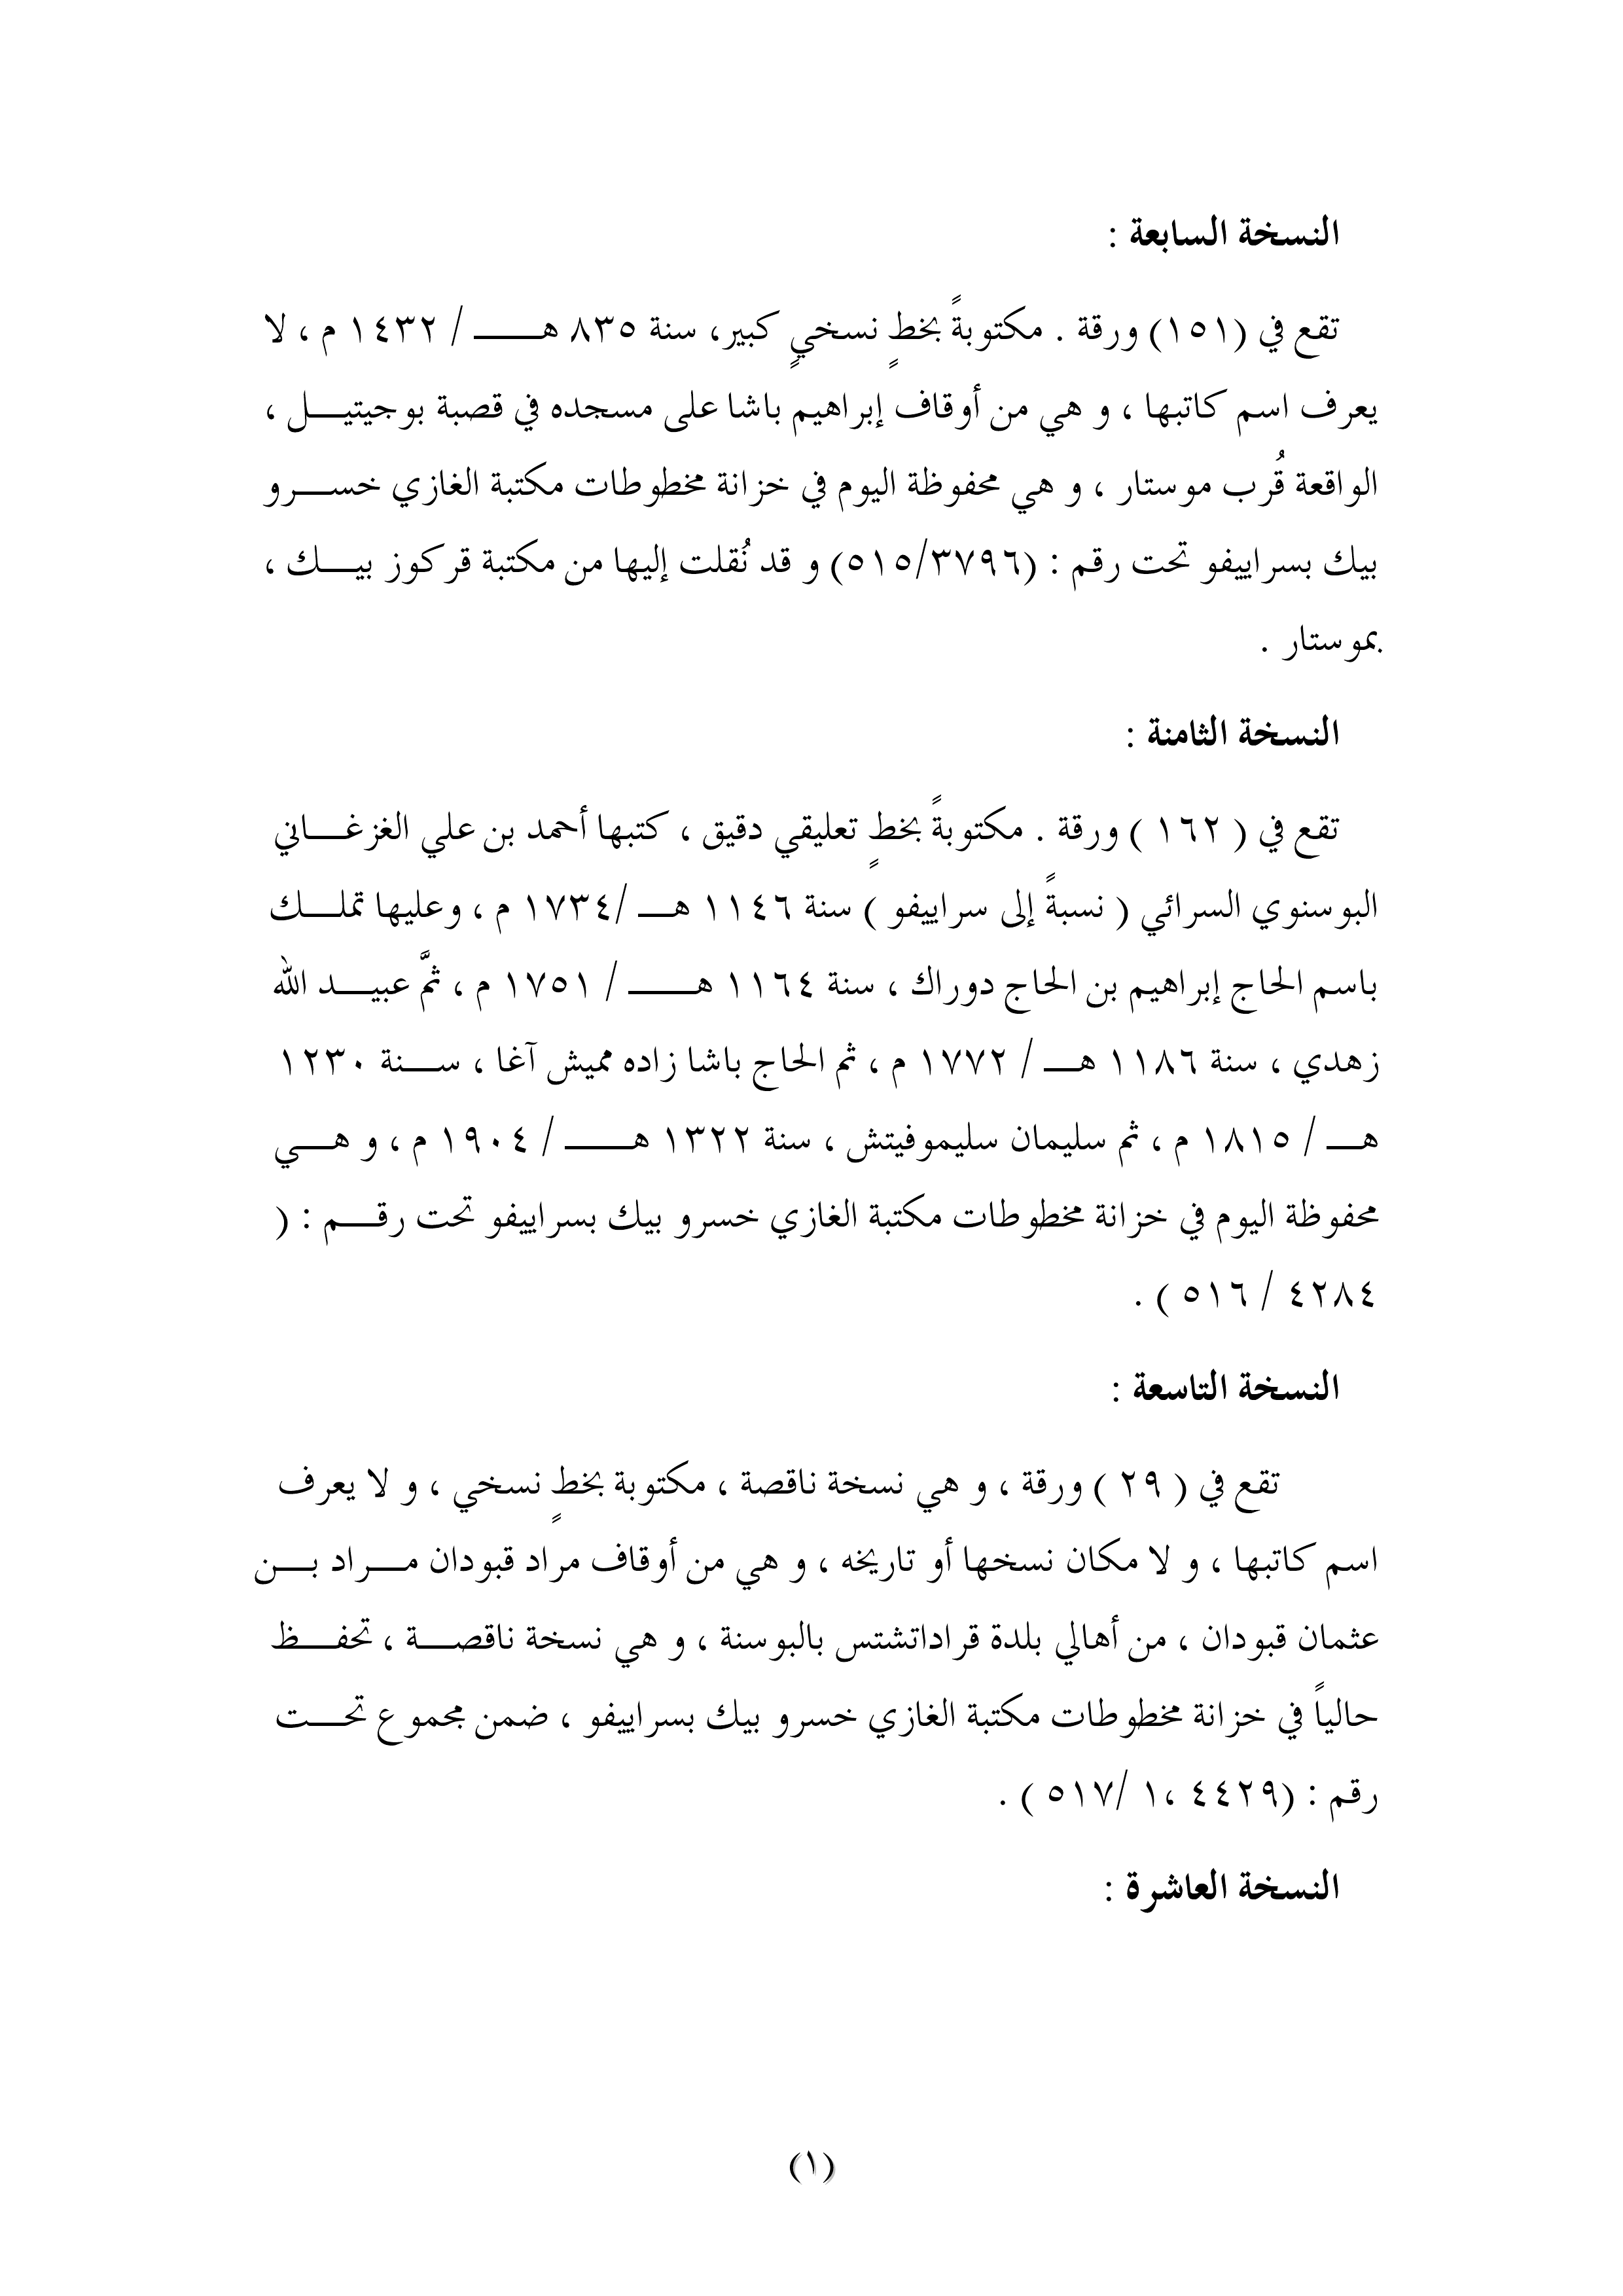 النسخة السابعة :
تقع في (١٥١) ورقة . مكتوبةً بخطٍ نسخيٍ كبير، سنة ٨٣٥ هـــــ / ١٤٣٢ م ، لا
يعرف اسم كاتبها ، و هي من أوقاف إبراهيم باشا على مسجده في قصبة بوجيتيـــل ،
الواقعة قُرب موستار ، و هي محفوظة اليوم في خزانة مخطوطات مكتبة الغازي خســـرو
بيك بسراييفو تحت رقم : (٥١٥/٣٧٩٦) و قد نُقلت إليها من مكتبة قركوز بيـــك ،
بموستار .
النسخة الثامنة :
تقع في ( ١٦٢ ) ورقة . مكتوبةً بخطٍ تعليقي دقيق ، كتبها أحمد بن علي الغزغـــاني
البوسنوي السرائي ( نسبةً إلى سراييفو ) سنة ١١٤٦ هـــ /١٧٣٤ م ، وعليها تملـــك
باسم الحاج إبراهيم بن الحاج دوراك ، سنة ١١٦٤ هـــــ / ١٧٥١ م ، ثمَّ عبيـــد الله
زهدي ، سنة ١١٨٦ هـــ / ١٧٧٢ م ، ثم الحاج باشا زاده مميش آغا ، ســـنة ١٢٣٠
هـــ / ١٨١٥ م ، ثم سليمان سليموفيتش ، سنة ١٣٢٢ هـــــ / ١٩٠٤ م ، و هـــي
محفوظة اليوم في خزانة مخطوطات مكتبة الغازي خسرو بيك بسراييفو تحت رقـــم : (
٤٢٨٤ / ٥١٦ ) .
النسخة التاسعة :
تقع في ( ٢٩ ) ورقة ، و هي نسخة ناقصة ، مكتوبة بخطٍ نسخي ، و لا يعرف
اسم كاتبها ، و لا مكان نسخها أو تاريخه ، و هي من أوقاف مراد قبودان مـــراد بـــن
عثمان قبودان ، من أهالي بلدة قراداتشتس بالبوسنة ، و هي نسخة ناقصـــة ، تحفـــظ
حالياً في خزانة مخطوطات مكتبة الغازي خسرو بيك بسراييفو ، ضمن مجموع تحـــت
رقم : (٤٤٢٩ ،١ /٥١٧ ) .
النسخة العاشرة :
(١)